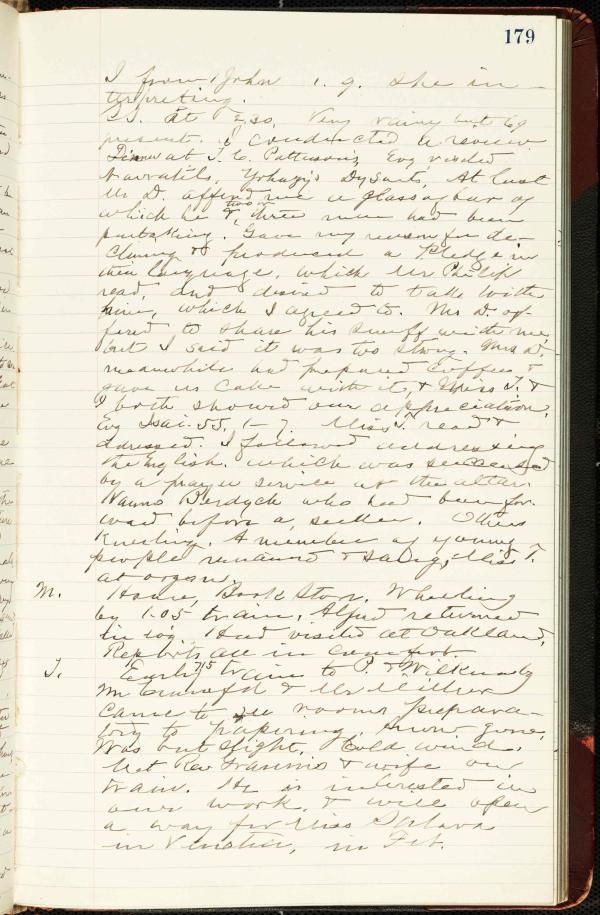 179
I from John 1. 9. she in-
terpreting.
S.S. at 2.30. Very rainy but 69
present. I conducted a review.
Dinner at T. C. Pattersons, Evg visited
Navratils, Yohazy's Dysarts, At last
Mr D. offered me a glass of
which he & two or three men had been
partaking. Gave my reason for de-
clining & produced a Pledge in
their language, which Mr Philip
read, and desired to talk with
him, which I agreed to. Mr D. of-
fered to share his snuff with me,
but I said it was too strong. Mrs D.
meanwhile had prepared Coffee, &
gave us Cake with it, & Miss T. &
I both showed our appreciation.
Evg Isai. 55, 1-7. Miss T. read &
adressed. I followed addressing
the English. which was succeeded
by a prayer service at the altar.
Berdych who had been for-
ward before a seeker. Others
kneeling. A member of young
people remained & sang, Miss T.
at organ.
M. Home, Book Store. Wheeling
by 1.05 train. Alfred returned
in evg. Had visited at Oakland,
Reports all in comfort.
T. Early 7.15 train to P. & Wilkinsbg
Mr & Mr Miller
came to rooms prepara-
tory to papering. Snow gone,
Was but slight. Cold wind.
Met Rev & wife on
train. He is interested in
our work. & will open
a way for Miss
in, in Feb.